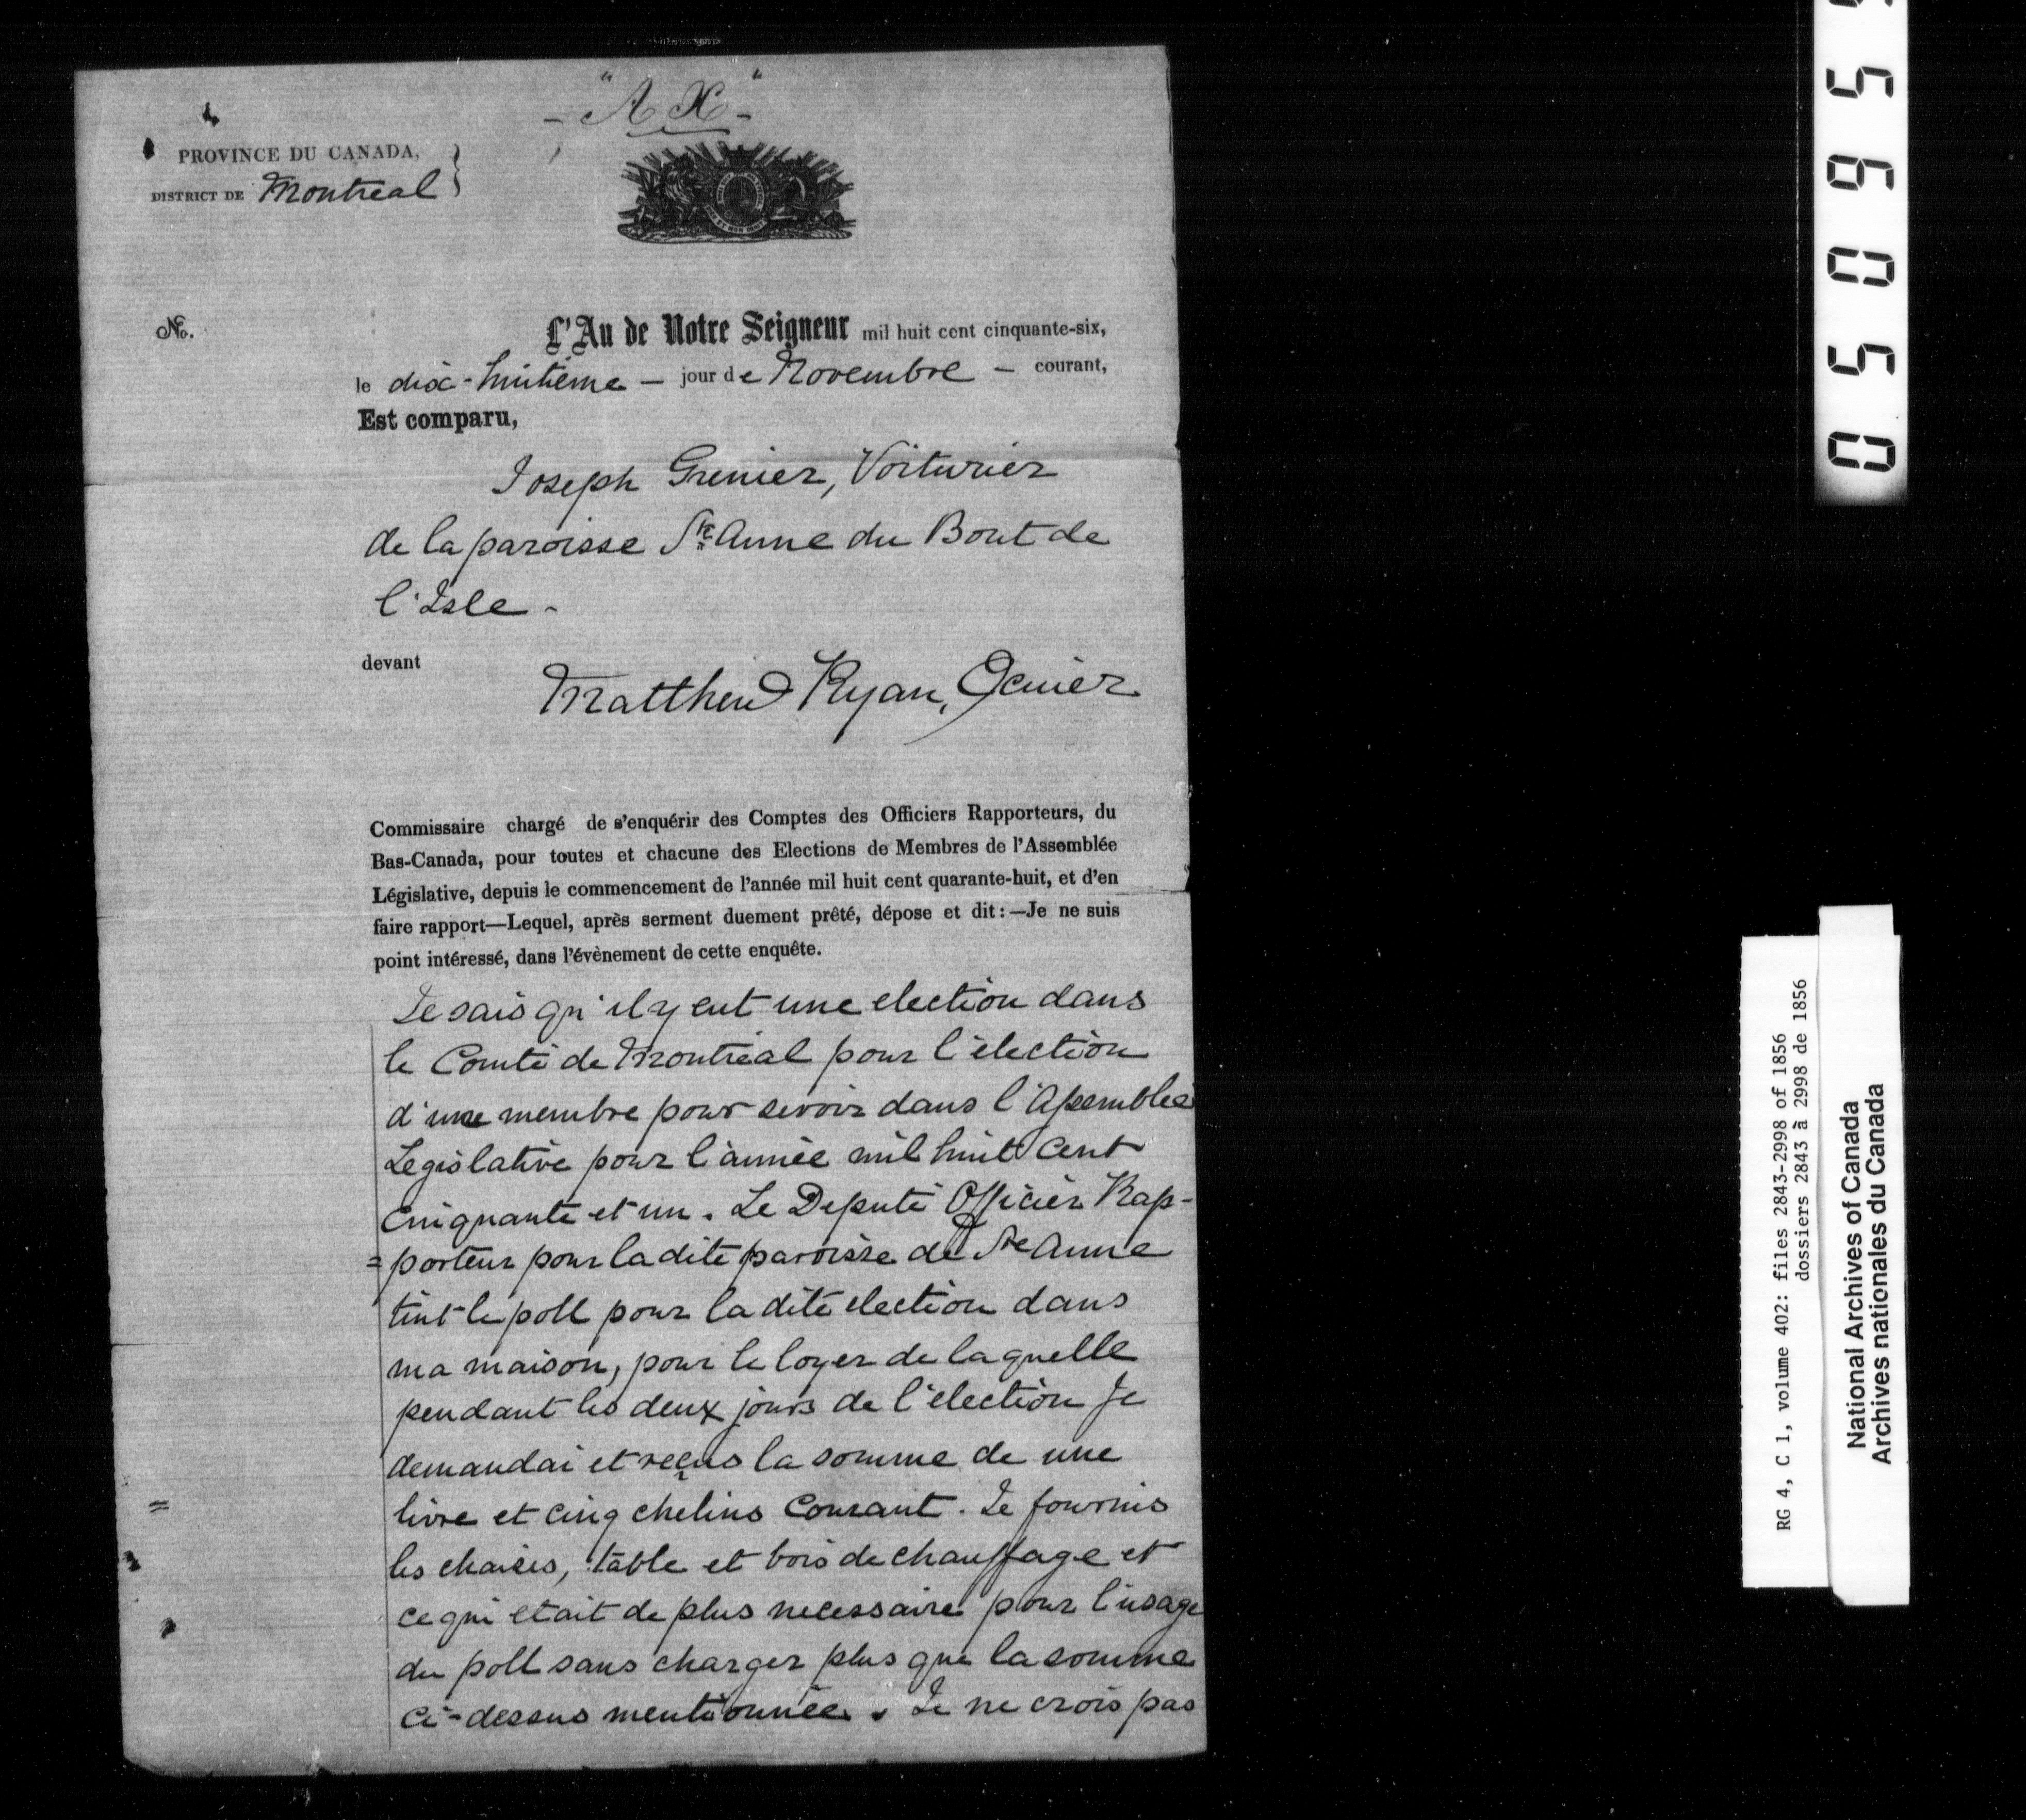 - "A X" -
PROVINCE DU CANADA,
DISTRICT DE Montreal
No.
L'An de Notre Seigneur mil huit cent cinquante-six,
le dix-huitieme - jour de Novembre - courant,
Est comparu,
Joseph Grenier, Voiturier
de la paroisse Ste Anne du Bout de
l'Isle -
devant
Matthew Ryan, Ecuier
Commissaire chargé de s'enquérir des Comptes des Officiers Rapporteurs, du
Bas-Canada, pour toutes et chacune des Elections de Membres de l'Assemblée
Législative, depuis le commencement de l'année mil huit cent quarante-huit, et d'en
faire rapport—Lequel, après serment duement prêté, dépose et dit:—Je ne suis
point intéressé, dans l'évènement de cette enquête.
Je sais qu'il y eut une election dans
le Comté de Montreal pour l'élection
d'une membre pour servir dans l'Assemblée
Legislative pour l'année mil huit cent
cinquante et un. Le Deputé Officier Rap-
=porteur pour la dite paroisse de Ste Anne
tint le poll pour la dite election dans
ma maison, pour le loyer de laquelle
pendant les deux jours de l'élection je
demandai et reçus la somme de une
livre et cinq chelins Courant. Je fournis
les chaises, table et bois de chauffage et
ce qui etait de plus necessaire pour l'usage
du poll sans charger plus que la somme
ci-dessus mentionnée. Je ne crois pas
05095
RG 4, C 1, volume 402: files 2843-2998 of 1856
dossiers 2843 à 2998 de 1856
National Archives of Canada
Archives nationales du Canada